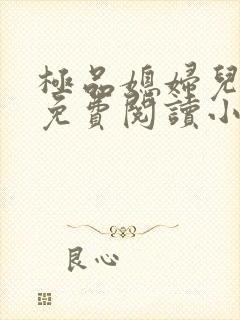 極品媳婦兒
免費閱讀小
良心